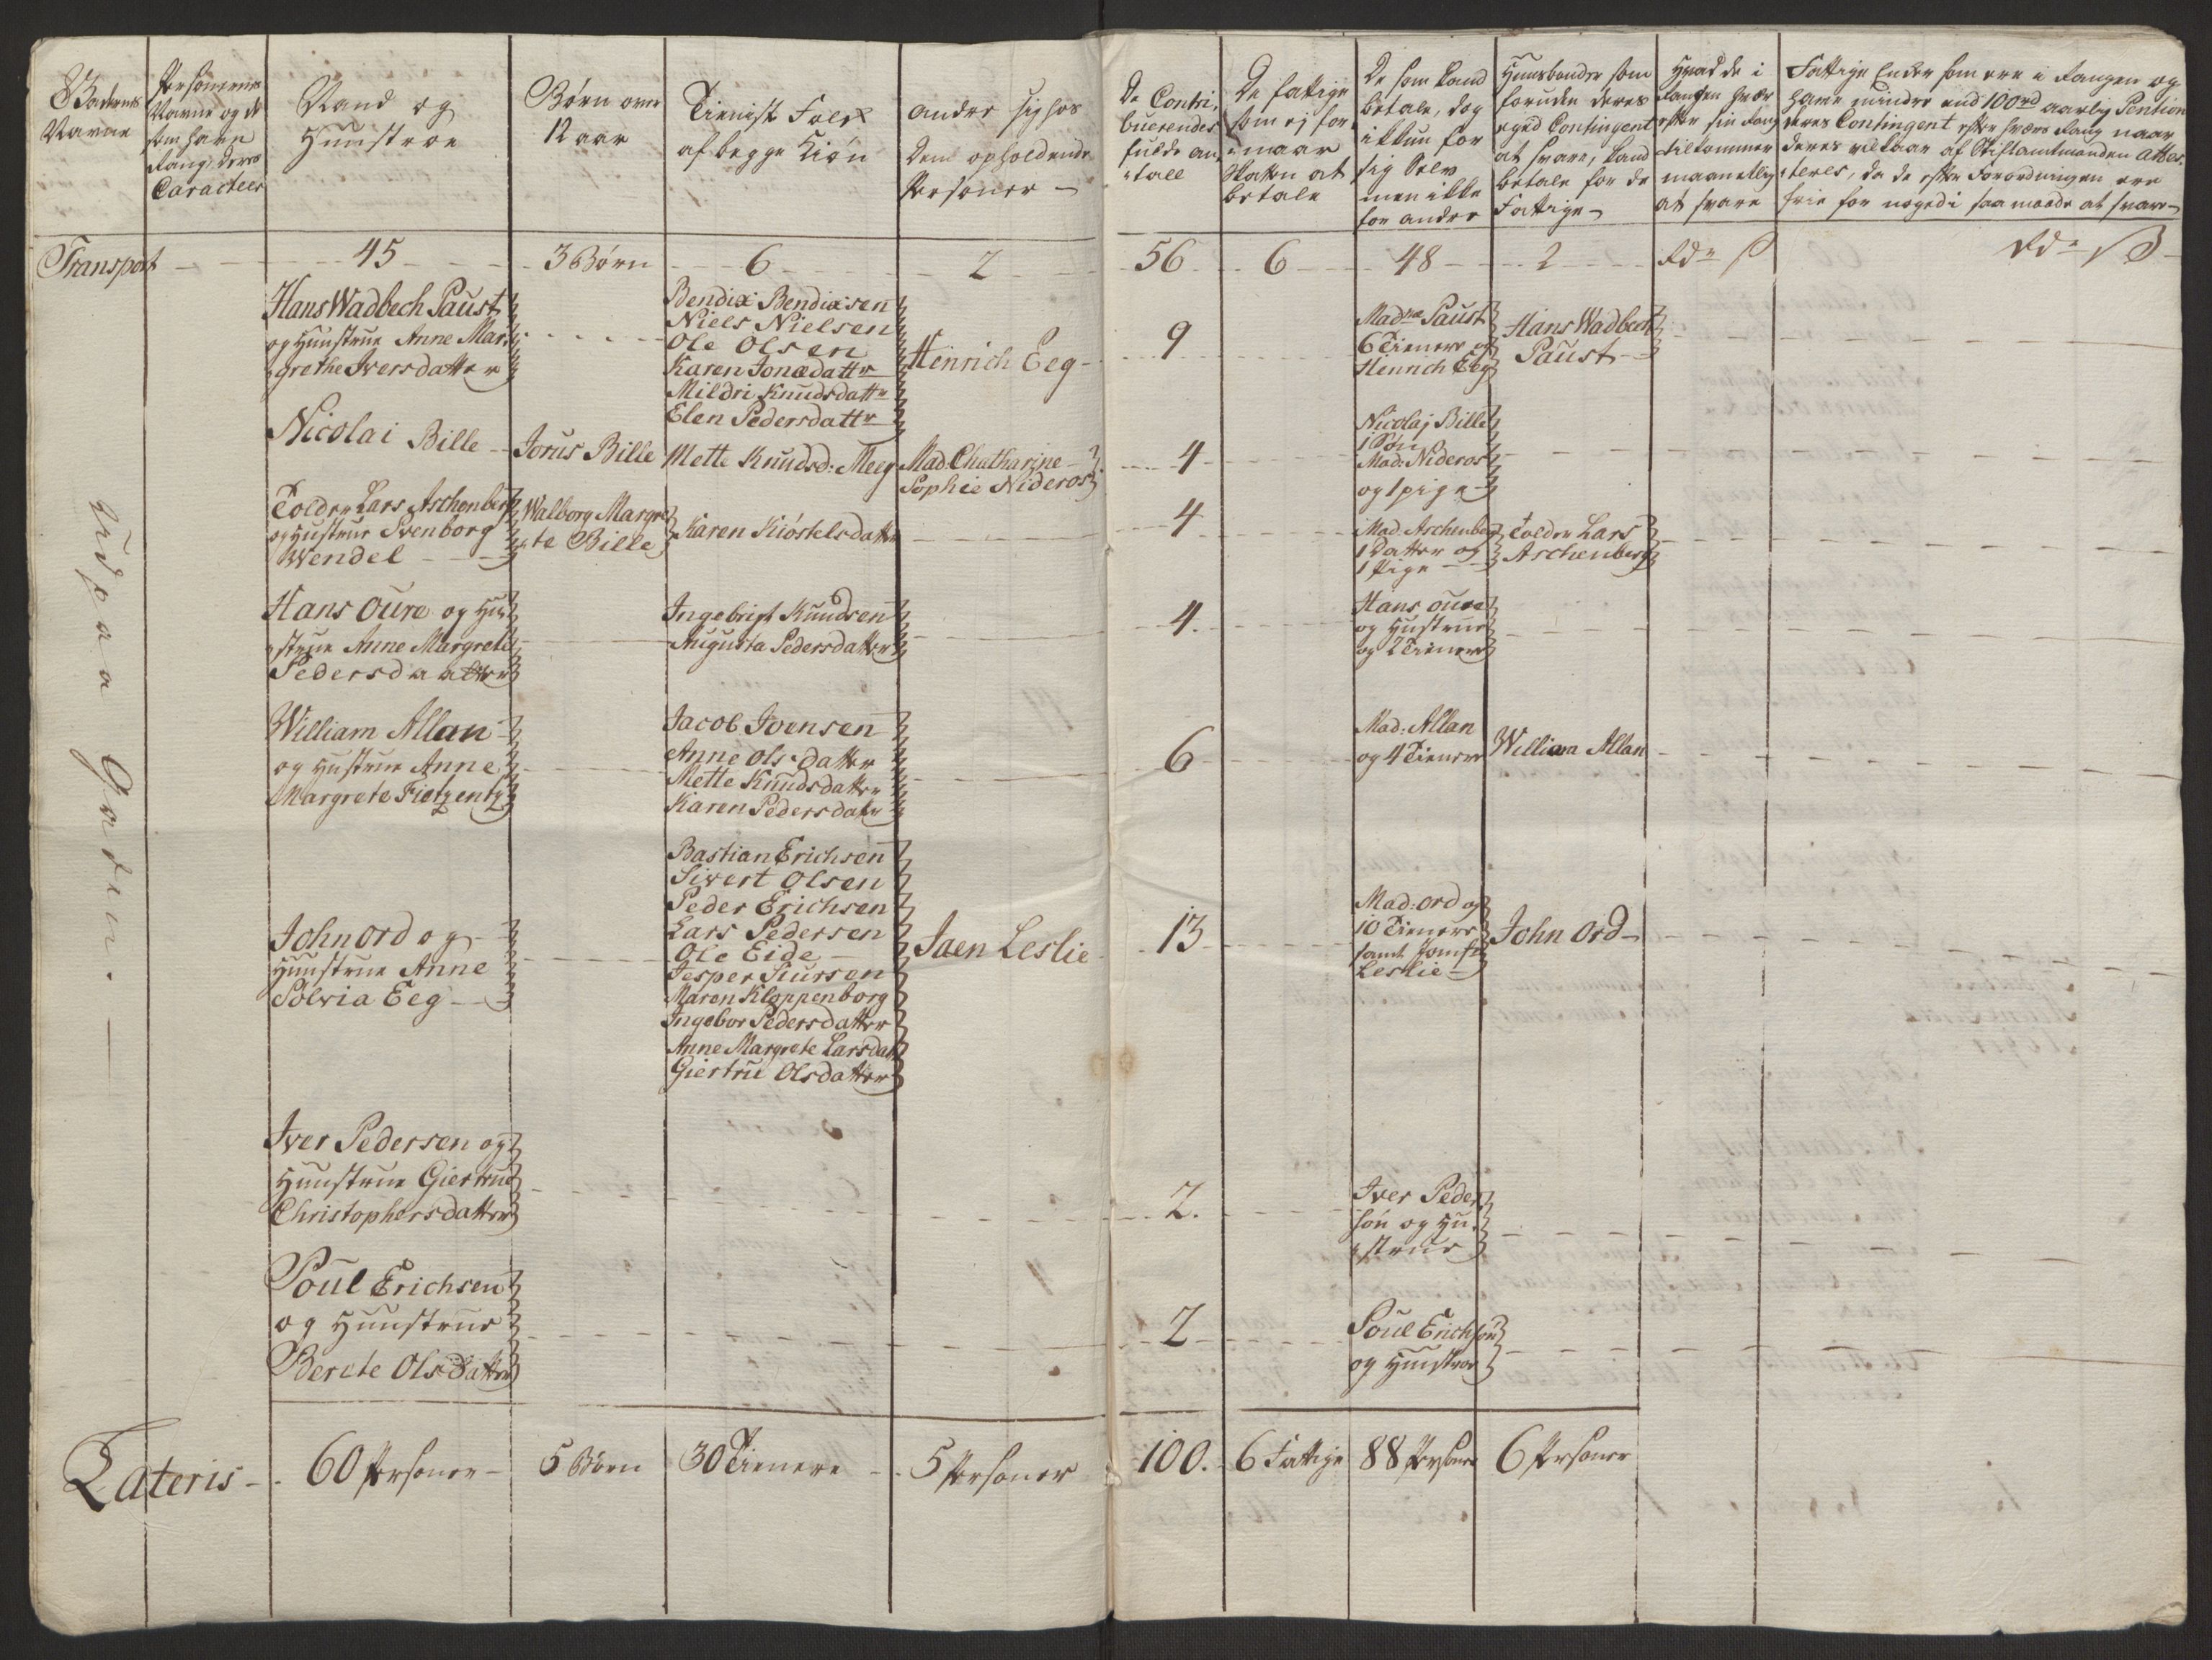 Gadernes
Navne
Personernes
Navne og de
som have
Rang, deres
Caracteer
Mand og
Hunstroe
Børn over
12 aar
Tienist Folk
af begge Kiøn
andre sig hos
dem opholdende
Personer –
De Contri-
buerendes
fulde an-
tall
De fattige
som ej for-
maar
Skatten at
betale
De som kand
betale, dog
ikkun for
sig Selv
men ikke
for andre
Huusbonder som
foruden deres
eged Contingent
at svare, kand
betale for de
Fattige –
Hvad de i
Rangen hvær
efter sin Rang
tilkommer
maanetlig
at svare
Fattige Enker som ere i Rangen og
have mindre end 100 rd aarlig Pention
deres Contingent efter hvers Rang naar
deres vilkaar af Stiftamtmanden attes-
teres, da de efter Forordningen ere
frie for noged i saa maade at svare –
Transport – 45 – 3 Børn – 6 – 2 – 56 – 6 – 48 – 2 – Rdr ß Rdr ß
Udpaa Gaden. —
Hans Wadbech Paust
og Hunstrue Anne Mar-
grethe Iversdatter
Bendix Bendixsen
Niels Nielsen
Ole Olsen
Karen Jonædattr
Mildri Knudsdattr
Elen Pedersdattr
Hinrich Eeg –
9
Madme Paust
6 Tienere og
Henrich Eeg
Hans Wadbech
Paust –
Nicolai Bille –
Jorus Bille
Mette Knudsd: Meeg
Mad. Chatharine –
Sophie Nideros
4
Nicolaj Bille
1 Søn
Mad: Nideros
og 1 pige
Tolder Lars Aschenberg
og Hustrue Svenborg
Wendel –
Walborg Margre-
te Bille
Karen Kiøstelsdatter
4
Mad. Aschenberg
1 Datter og
1 Pige –
Tolder Lars
Aschenberg
Hans Oure og Hu-
strue Anne Margrete
Pedersdaatter
Ingebrigt Knudsen
Augusta Pedersdatter
4.
Hans Oure
og Hustrue
og 2 Tienere
William Allan –
og Hustrue Anne
Margrete Fietzentz
Jacob Ivensen
Anne Ols-datter
Mette Knudsdatter
Karen Pedersdatr
6
Mad: Allan
og 4 Tienere
William Allan
John Ord og –
Hunstrue Anne
Solvia Eeg –
Bastian Erichsen
Sivert Olsen
Peder Erichsen
Lars Pedersen
Ole Eide –
Jesper Siursen
Maren Kloppenborg
Ingebor Pedersdatter
Anne Margrete Larsdatr
Giertru Olsdatter
Jaen Leslie
13
Mad: Ord og
10 Tienere
samt Jomfr
Leslie –
John Ord –
Iver Pedersen og
Hunstrue Giertrue
Christophersdatter
2.
Iver Peder-
søn og Hu-
strue
Poul Erichsen
og Hunstrue
Berete Olsdatter
2
Poul Erichsøn
og Hunstroe
Lateris – 60 Personer – 5 Børn 30 Tienere – 5 Personer 100. 6 Fattige 88 Persone 6 Personer